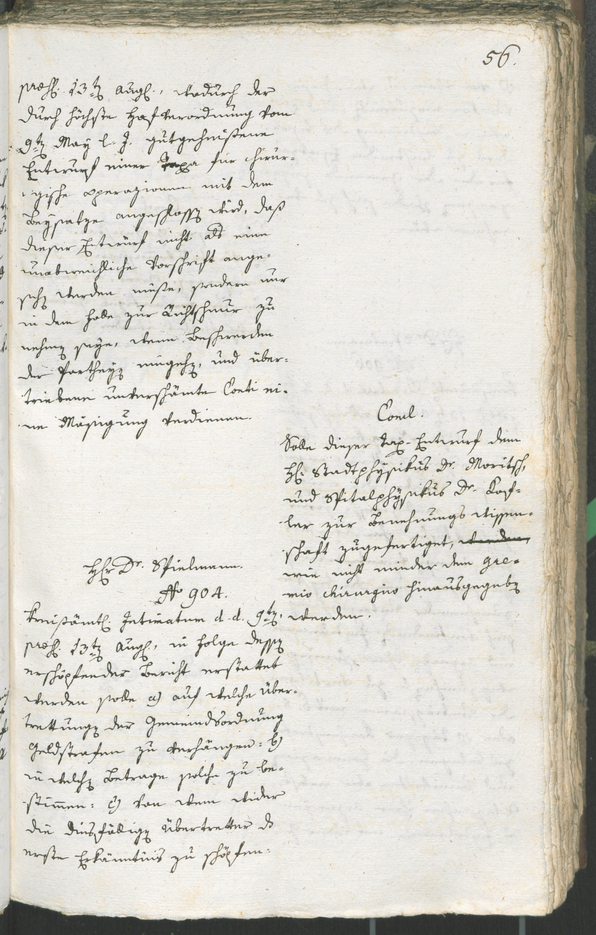 56.
præs. 13tn Augs., wodurch der
durch höchste Hofverordnung vom
9tn May l. J. gutgeheißene
Entwurf einer Taxa für chirur-
gische operazionen mit dem
Beysatze angeschlossn wird, daß
dieser Entwurf nicht als eine
unabweichliche Vorschrift ange-
sehn werden müße, sondern nur
in dem Falle zur Richtschnur zu
nehmen seye, wenn Beschwerden
der Partheyn eingehn, und über-
triebene unverschämte Conti ei-
ne Mäsigung verdienen.
Concl:
Solle dieser Tax-Entwurf dem
Hr. Stadtphysikus Dr. Moritsch,
und Spitalphysikus Dr.
zur Benehmungs wissen-
schaft zugefertiget, werden,
wie nicht minder dem Gre-
mio chirurgico hinausgegebn
werden.
Hr Dr. Spielmann.
No 904.
Kreisämtl. Intimatum d. d. 9tn,
præs. 13tn Augs., in Folge dessn
erschöpfender Bericht erstattet
werden solle a) auf welche Über-
trettungn der Gemeindsordnung
Geldstrafen zu verhängen: b)
in welchn Betrage solche zu be-
stimmen: c) von wem wider
die diesfälign Übertretter d
erste Erkänntnis zu schöpfen: